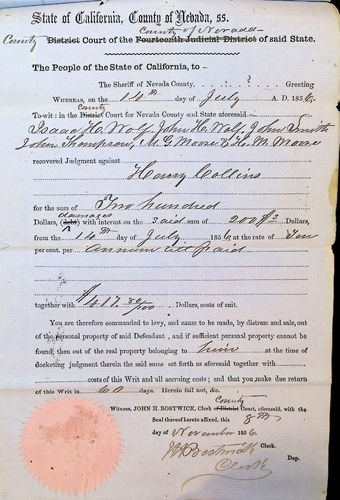 State of California, County of Nevada, ss.
County of Nevada
County District Court of the Fourteenth Judicial District of said State.
The People of the State of California, to
The Sheriff of Nevada County, Greeting
Whereas, on the 14th day of July A. D. 1856.
County
To-wit: in the District Court for Nevada County and State aforesaid
Isaac H. Wolf, John H. Wolf, John Smith
John Thompson, M. G. Moore & H. M. Moore
recovered Judgment against
Henry Collins
for the sum of Two hundred
damages
Dollars, (debt) with interest on the said sum of 200 Dollars,
from the 14th day of July 1856 at the rate of Ten
per cent. per Annum till paid
together with $417.80/100 Dollars, costs of suit.
You are therefore commanded to levy, and cause to be made, by distress and sale, out
of the personal property of said Defendant, and if sufficient personal property cannot be
found, then out of the real property belonging to him at the time of
docketing judgment therein the said sum set forth as aforesaid together with
costs of this Writ and all accruing costs; and that you make due return
of this Writ in 60 days. Herein fail not, &c.
County
Witness, JOHN H. BOSTWICK, Clerk of District Court, aforesaid, with the
Seal thereof hereto affixed, this 8th
day of November 1856.
J H Bostwick Clerk.
Clerk Dep.